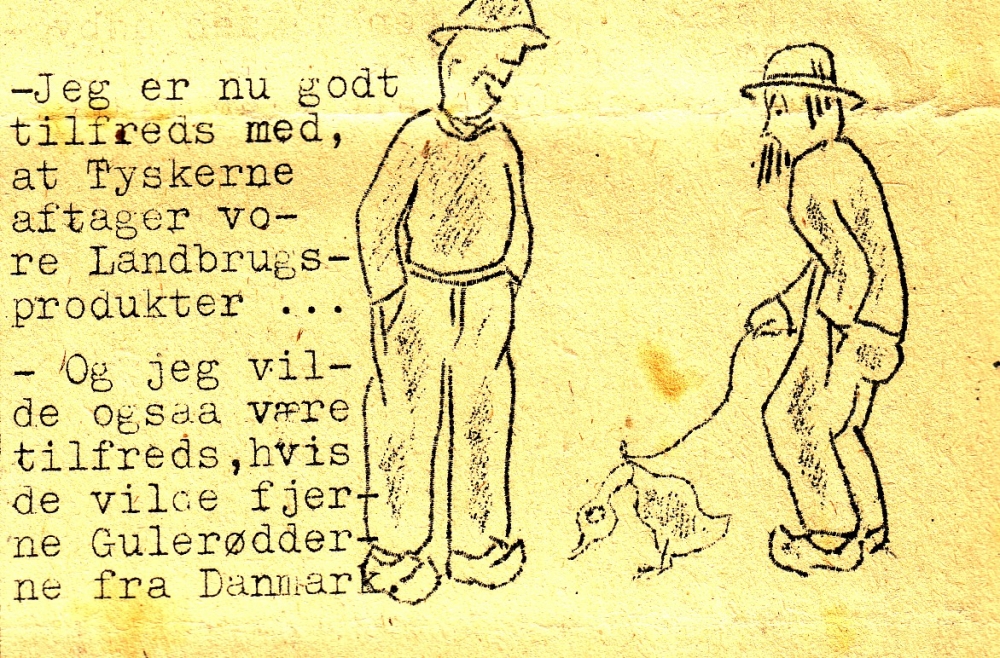 -Jeg er nu godt
tilfreds med,
at Tyskerne
aftager vo-
re Landbrugs-
produkter ...
- Og jeg vil-
de ogsaa være
tilfreds,hvis
de vilde fjer-
ne Gulerødder-
ne fra Danmark.